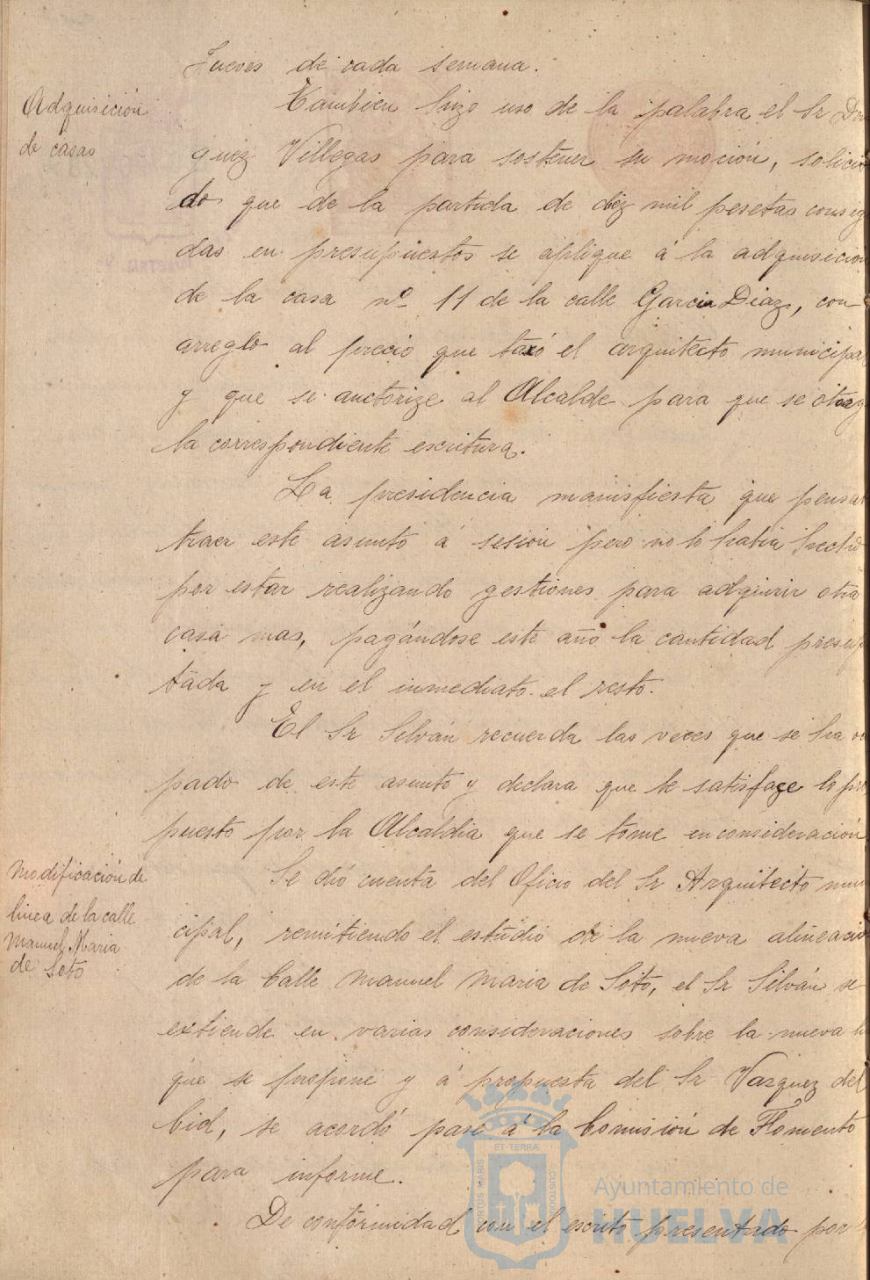 Jueves de cada semana.
Adquisición
de casas
Tambien hizo uso de la palabra el Sr Dom
guez Villegas para sostener su moción, solicit
do que de la partida de diez mil pesetas consig
das en presupuestos se aplique á la adquisicion
de la casa nº 11 de la calle Garcia Diaz, con
arreglo al precio que taxó el arquitecto municipal
y que se auctorize al Alcalde para que se otorg
la correspondiente escritura.
La presidencia manisfiesta que pensab
traer este asunto á sesion pero no lo habia hecho
por estar realizando gestiones para adquirir otra
casa mas, pagándose este año la cantidad presup
tada y en el inmediato el resto.
El Sr Silván recuerda las veces que se ha oc
pado de este asunto y declara que le satisface lo pro
puesto por la Alcaldia que se tome en consideración
Modificación de
linea de la calle
Manuel Maria
de Soto
Se dió cuenta del Oficio del Sr Arquitecto mun
cipal, remitiendo el estudio de la nueva alineacio
de la Calle Manuel Maria de Soto, el Sr Silván se
extiende en varias consideraciones sobre la nueva li
que se propone y á propuesta del Sr Vazquez del
Cid, se acordó pase á la Comisión de Fomento
para informe.
De conformidad con el escrito presentado por
Ayuntamiento de
HUELVA